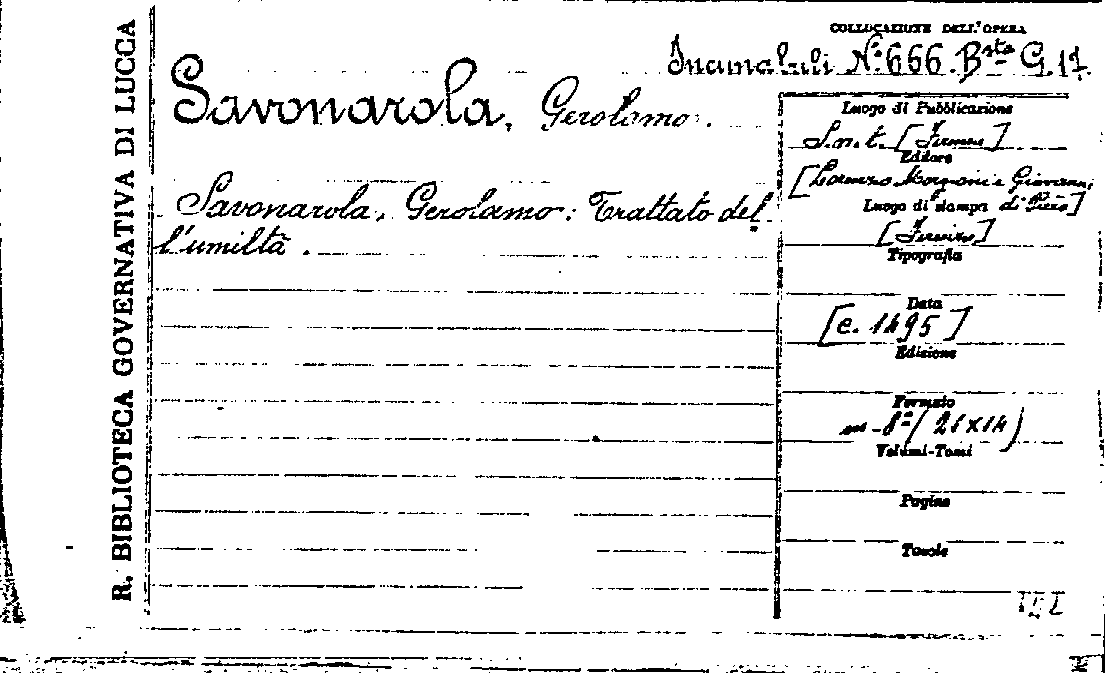 R. BIBLIOTECA GOVERNATIVA DI LUCCA
COLLOCAZIONE DELL'OPERA
Incunabuli N.° 666. Bsta G. 17.
Savonarola, Gerolamo.
Savonarola, Gerolamo: Trattato del
l'umiltà.
Luogo di Pubblicazione
S.n.t. [Firenze]
Editore
[Lorenzo Morgoni e Giovanni
Luogo di stampa di Piero]
[Firenze]
Tipografia
Data
[c. 1495]
Edizione
Formato
in-8° (21x14)
Volumi-Tomi
Pagine
Tavole